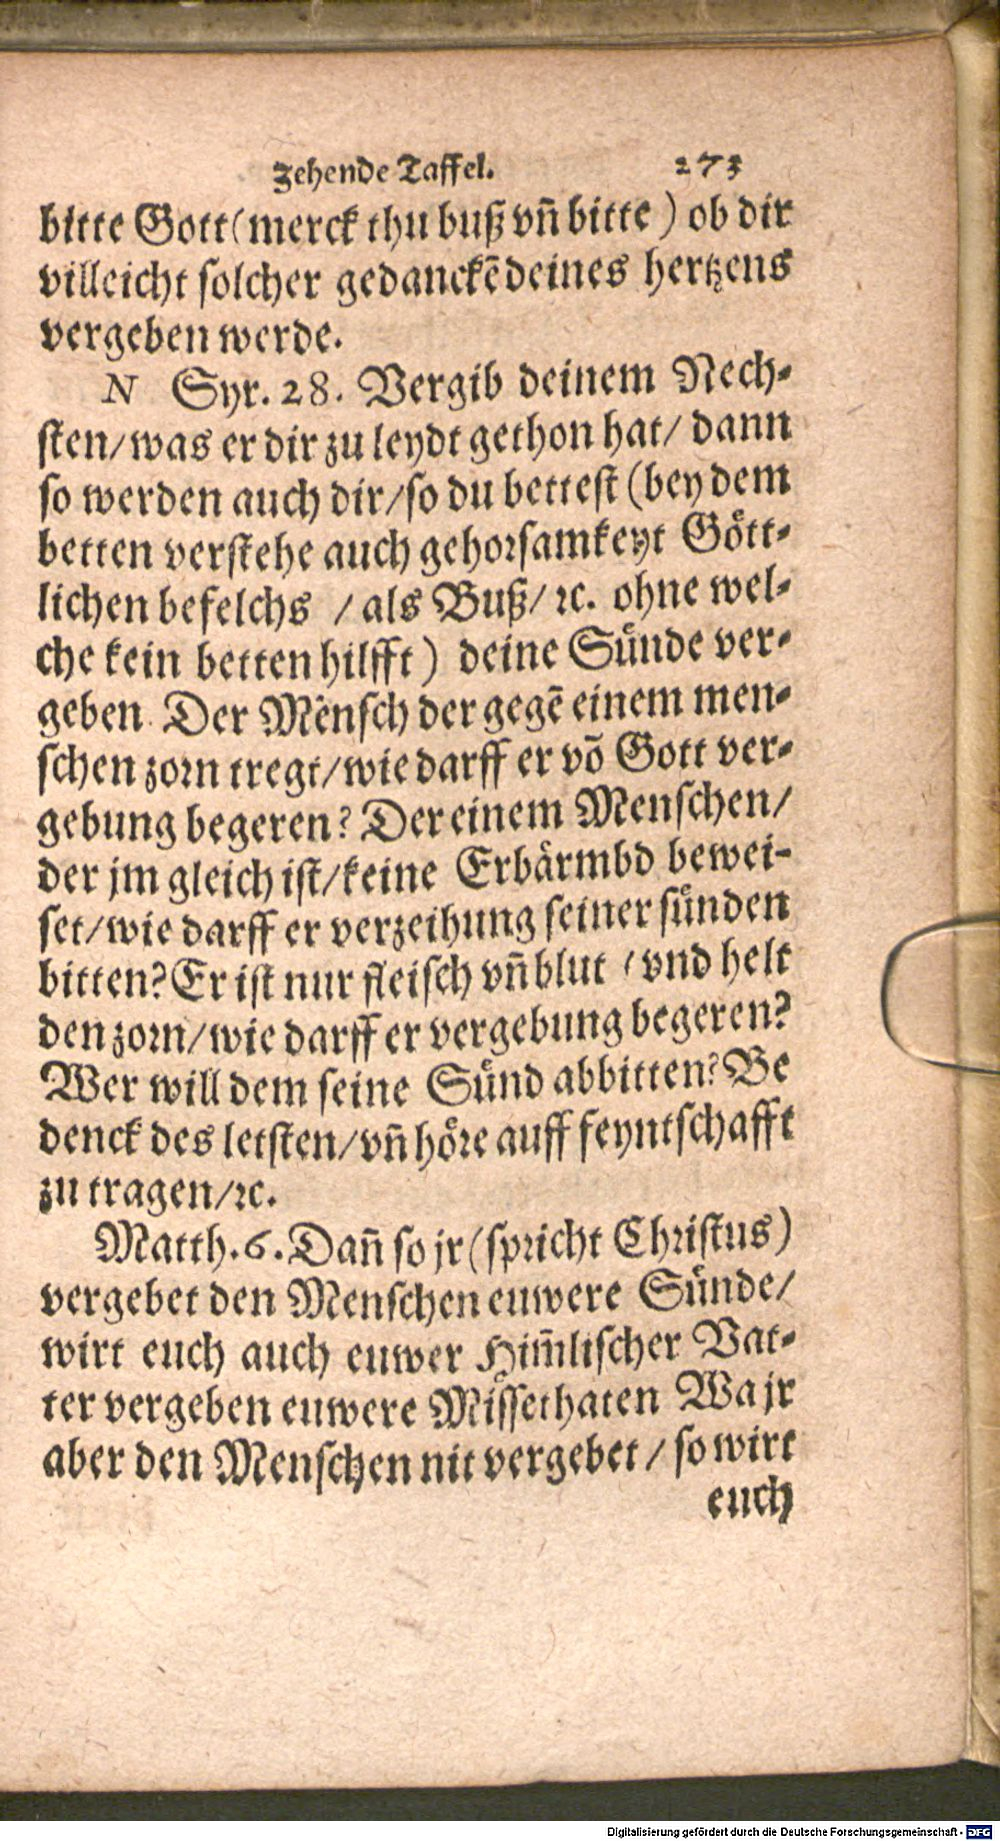 Zehende Taffel. 273
bitte Gott (merck thu buß vn̄ bitte) ob dir
villeicht solcher gedanckē deines hertzens
vergeben werde.
N Syr. 28. Vergib deinem Nech-
sten/ was er dir zu leydt gethon hat/ dann
so werden auch dir/ so du bettest (bey dem
betten verstehe auch gehorsamkeyt Gött-
lichen befelchs / als Buß/ ꝛc. ohne wel-
che kein betten hilfft) deine Sünde ver-
geben. Der Mensch der gegē einem men-
schen zorn tregt/ wie darff er vō Gott ver-
gebung begeren? Der einem Menschen/
der jm gleich ist/ keine Erbärmbd bewei-
set/ wie darff er verzeihung seiner sünden
bitten? Er ist nur fleisch vn̄ blut / vnd helt
den zorn/ wie darff er vergebung begeren?
Wer will dem seine Sünd abbitten? Be
denck des letsten/ vn̄ höre auff feyntschafft
zu tragen/ ꝛc.
Matth. 6. Dan̄ so jr (spricht Christus)
vergebet den Menschen euwere Sünde/
wirt euch auch euwer Him̄lischer Vat-
ter vergeben euwere Missethaten Wa jr
aber den Menschen nit vergebet / so wirt
euch
Digitalisierung gefördert durch die Deutsche Forschungsgemeinschaft - DFG